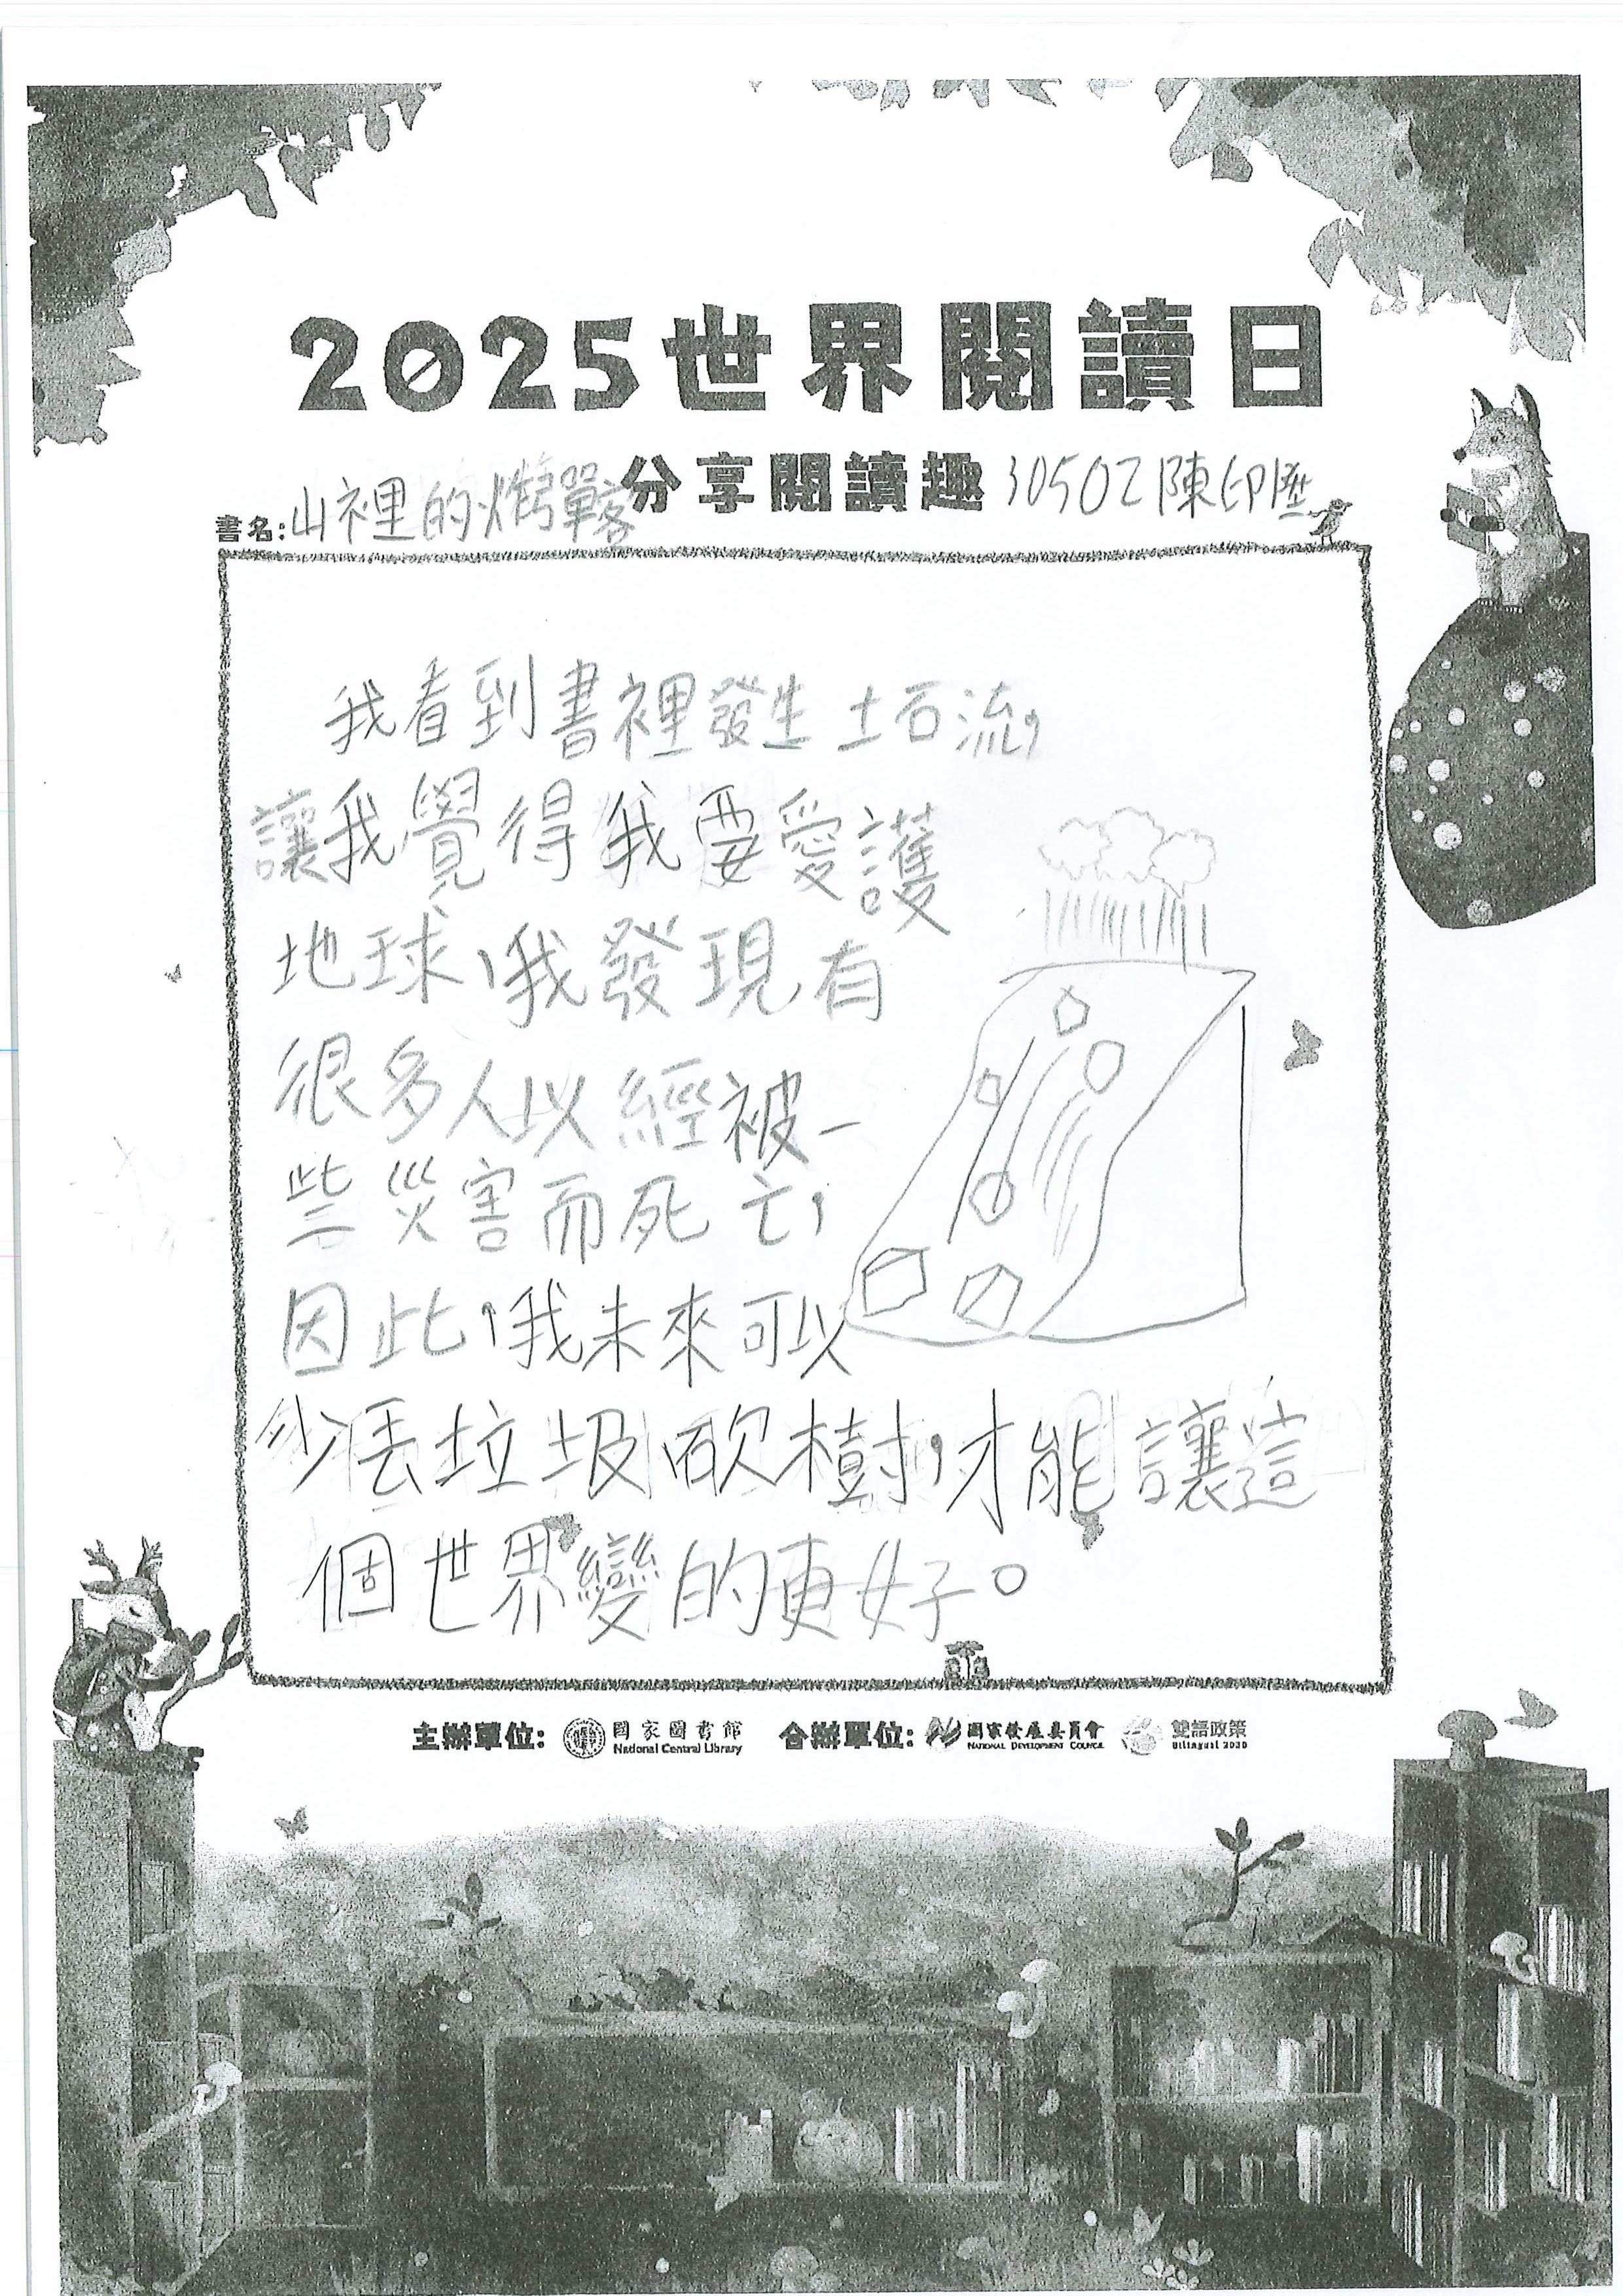 2025世界閱讀日
分享閱讀趣 30502陳印陞
書名:山裡的炸彈客
我看到書裡發生土石流,
讓我覺得我要愛護
地球,我發現有
很多人以經被一
些災害而死亡,
因此,我未來可以
少丟垃圾砍樹,才能讓這
個世界變的更好。
主辦單位: 國家圖書館 合辦單位: 國家發展委員會 雙語政策
National Central Library NATIONAL DEVELOPMENT COUNCIL Bilingual 2030